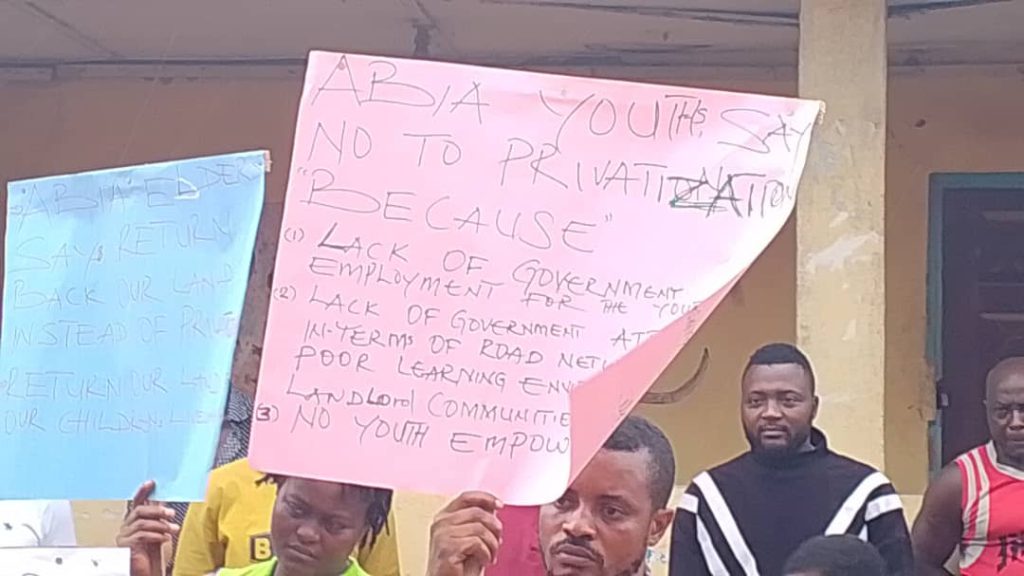 "ABIA" ELDERS
SAY RETURN
BACK OUR LAND
INSTEAD OF
RETURN OUR
OUR CHILDREN
ABIA YOUTHS SAY
NO TO PRIVATIZATION
"BECAUSE"
(1) LACK OF GOVERNMENT
EMPLOYMENT FOR THE
(2) LACK OF GOVERNMENT
IN-TERMS OF ROAD
POOR LEARNING
LANDLORD
(3) NO YOUTH
B